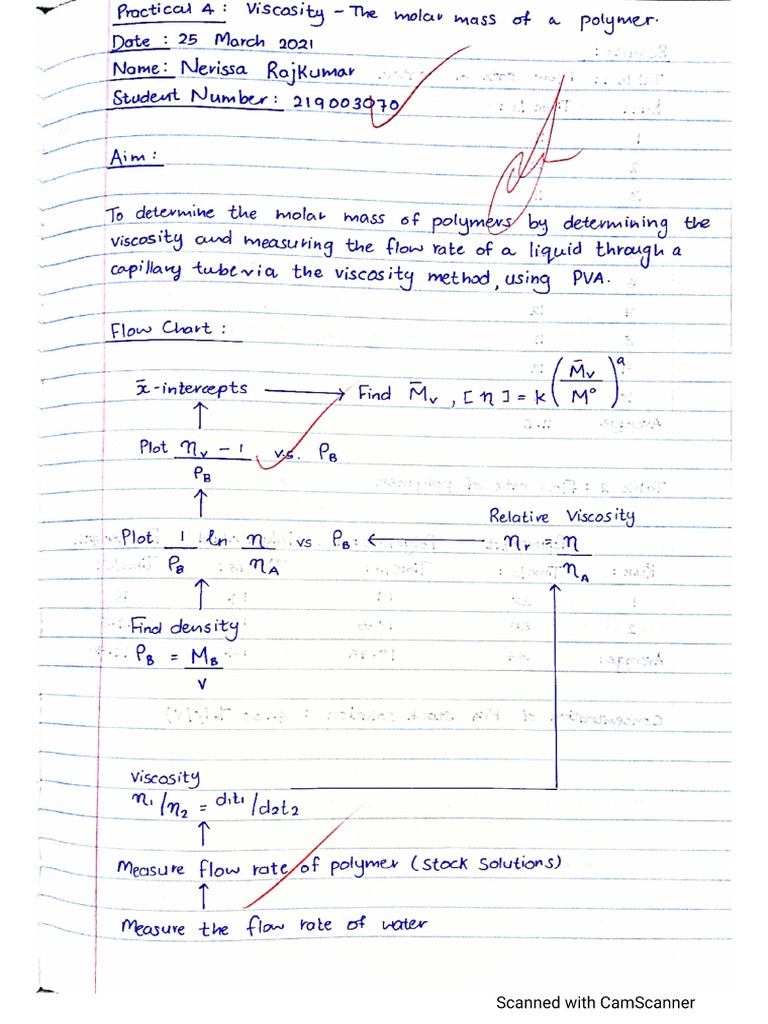 Practical 4 : Viscosity - The molar mass of a polymer.
Date : 25 March 2021
Name: Nerissa Rajkumar
Student Number: 219003070
Aim :
To determine the molar mass of polymers by determining the
viscosity and measuring the flow rate of a liquid through a
capillary tube via the viscosity method, using PVA.
Flow Chart :
x̄-intercepts → Find M̄v , [η] = k (M̄v / M°)^a
↑
Plot ηv - 1 / ρB vs. ρB
↑
Relative Viscosity
Plot 1/ρB ln η/ηA vs ρB: ← ηr = η/ηA
↑
Find density
ρB = MB / V
Viscosity
η1/η2 = d1t1/d2t2
↑
Measure flow rate of polymer (Stock Solutions)
↑
Measure the flow rate of water
Scanned with CamScanner